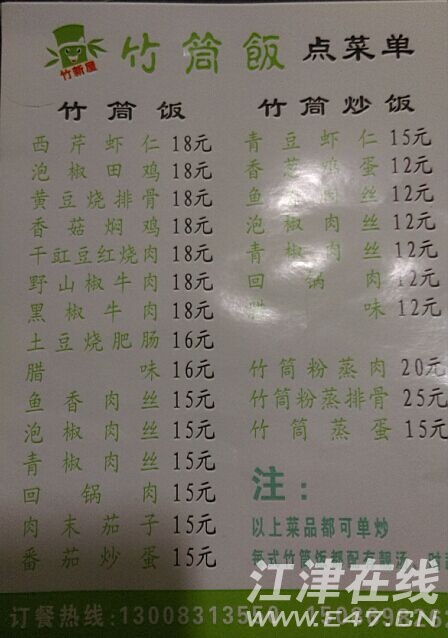 竹新屋
竹筒飯 点菜单
竹筒饭
西芹虾仁 18元
泡椒田鸡 18元
黄豆烧排骨 18元
香菇焖鸡 18元
干豇豆红烧肉 18元
野山椒牛肉 18元
黑椒牛肉 18元
土豆烧肥肠 16元
腊味 16元
鱼香肉丝 15元
泡椒肉丝 15元
青椒肉丝 15元
回锅肉 15元
肉末茄子 15元
番茄炒蛋 15元
竹筒炒饭
青豆虾仁 15元
香葱鸡蛋 12元
鱼香肉丝 12元
泡椒肉丝 12元
青椒肉丝 12元
回锅肉 12元
腊味 12元
竹筒粉蒸肉 20元
竹筒粉蒸排骨 25元
竹筒蒸蛋 15元
注：
以上菜品都可单炒
每式竹筒饭都配有靓汤、
订餐热线:13008313550
江津在线
www.E47.CN